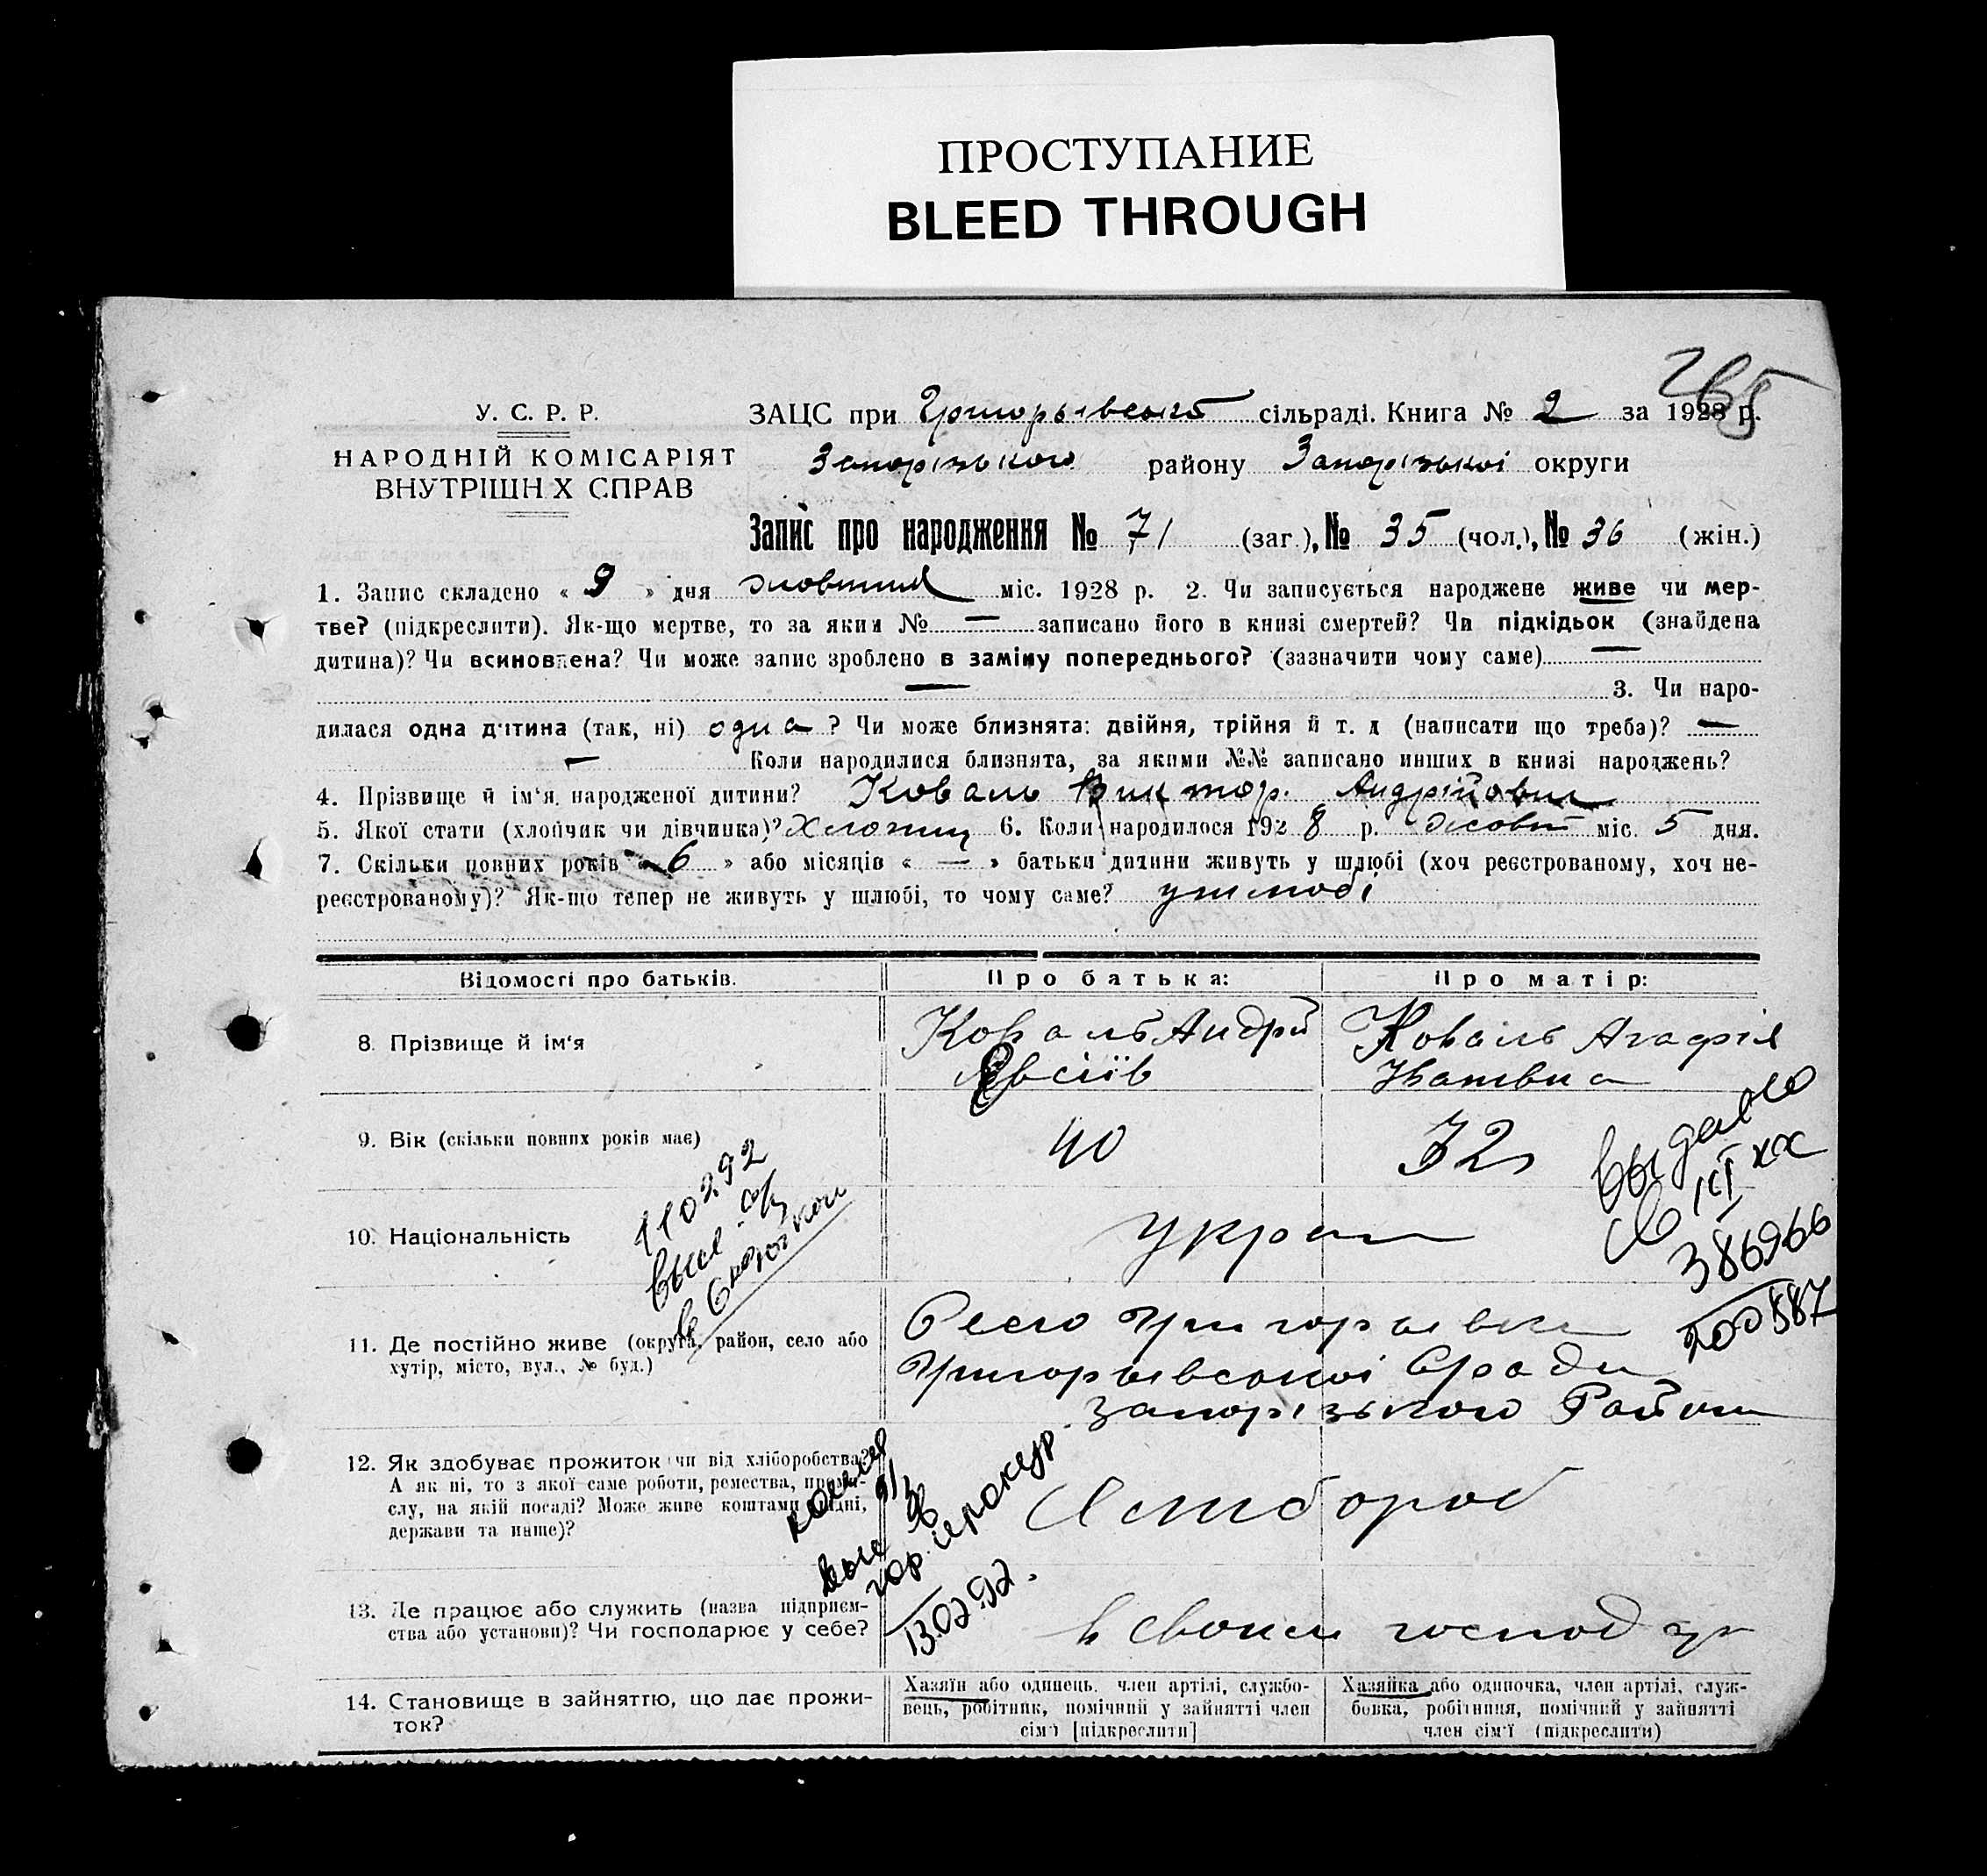 ПРОСТУПАНИЕ
BLEED THROUGH
265
У. С. Р. Р.
НАРОДНІЙ КОМІСАРІЯТ
ВНУТРІШН Х СПРАВ
ЗАЦС при Григорьївській сільраді. Книга № 2 за 1928 р.
Запорізького району Запорізької округи
Запис про народження № 71 (заг.), № 35 (чол.), № 36 (жін.)
1. Запис складено « 9 » дня жовтня міс. 1928 р. 2. Чи записується народжене живе чи мер-
тве? (підкреслити). Як-що мертве, то за яким № — записано його в книзі смертей? Чи підкідьок (знайдена
дитина)? Чи всиновлена? Чи може запис зроблено в заміну попереднього? (зазначити чому саме) —
— 3. Чи наро-
дилася одна дитина (так, ні) одна ? Чи може близнята: двійня, трійня й т. д (написати що треба)? —
— Коли народилися близнята, за якими №№ записано инших в книзі народжень?
4. Прізвище й ім‘я народженої дитини? Коваль Виктор Андрійович
5. Якої стати (хлопчик чи дівчинка)? Хлопець 6. Коли народилося 1928 р. жовт міс. 5 дня.
7. Скільки повних років « 6 » або місяців « — » батьки дитини живуть у шлюбі (хоч реєстрованому, хоч не-
реєстрованому)? Як-що тепер не живуть у шлюбі, то чому саме? у шлюбі
Відомості про батьків.
Про батька:
Про матір:
8. Прізвище й ім‘я
Коваль Андрій
Євсіїв
Коваль Агафія
9. Вік (скільки повних років має)
40
32
10. Національність
украін
110292
выдано
св III ЖС
386966
200587
11. Де постійно живе (округа, район, село або
хутір, місто, вул., № буд.)
Село Григорьївка
Григорьївської С/ради
Запорізького Району
12. Як здобуває прожиток чи від хліборобства?
А як ні, то з якої саме роботи, ремества, промис-
слу, на якій посаді? Може живе коштами рідні,
держави та инше)?
Хлібороб
гор. прокур.
13.02.92.
13. Де працює або служить (назва підприєм-
ства або установи)? Чи господарює у себе?
в своїм господ
14. Становище в зайняттю, що дає прожи-
ток?
Хазяїн або одинець. член артілі, службо-
вець, робітник, помічний у зайнятті член
сім‘ї [підкреслити]
Хазяйка або одиночка, член артілі, служ-
бовка, робітниця, помічний у зайнятті
член сім‘ї (підкреслити)